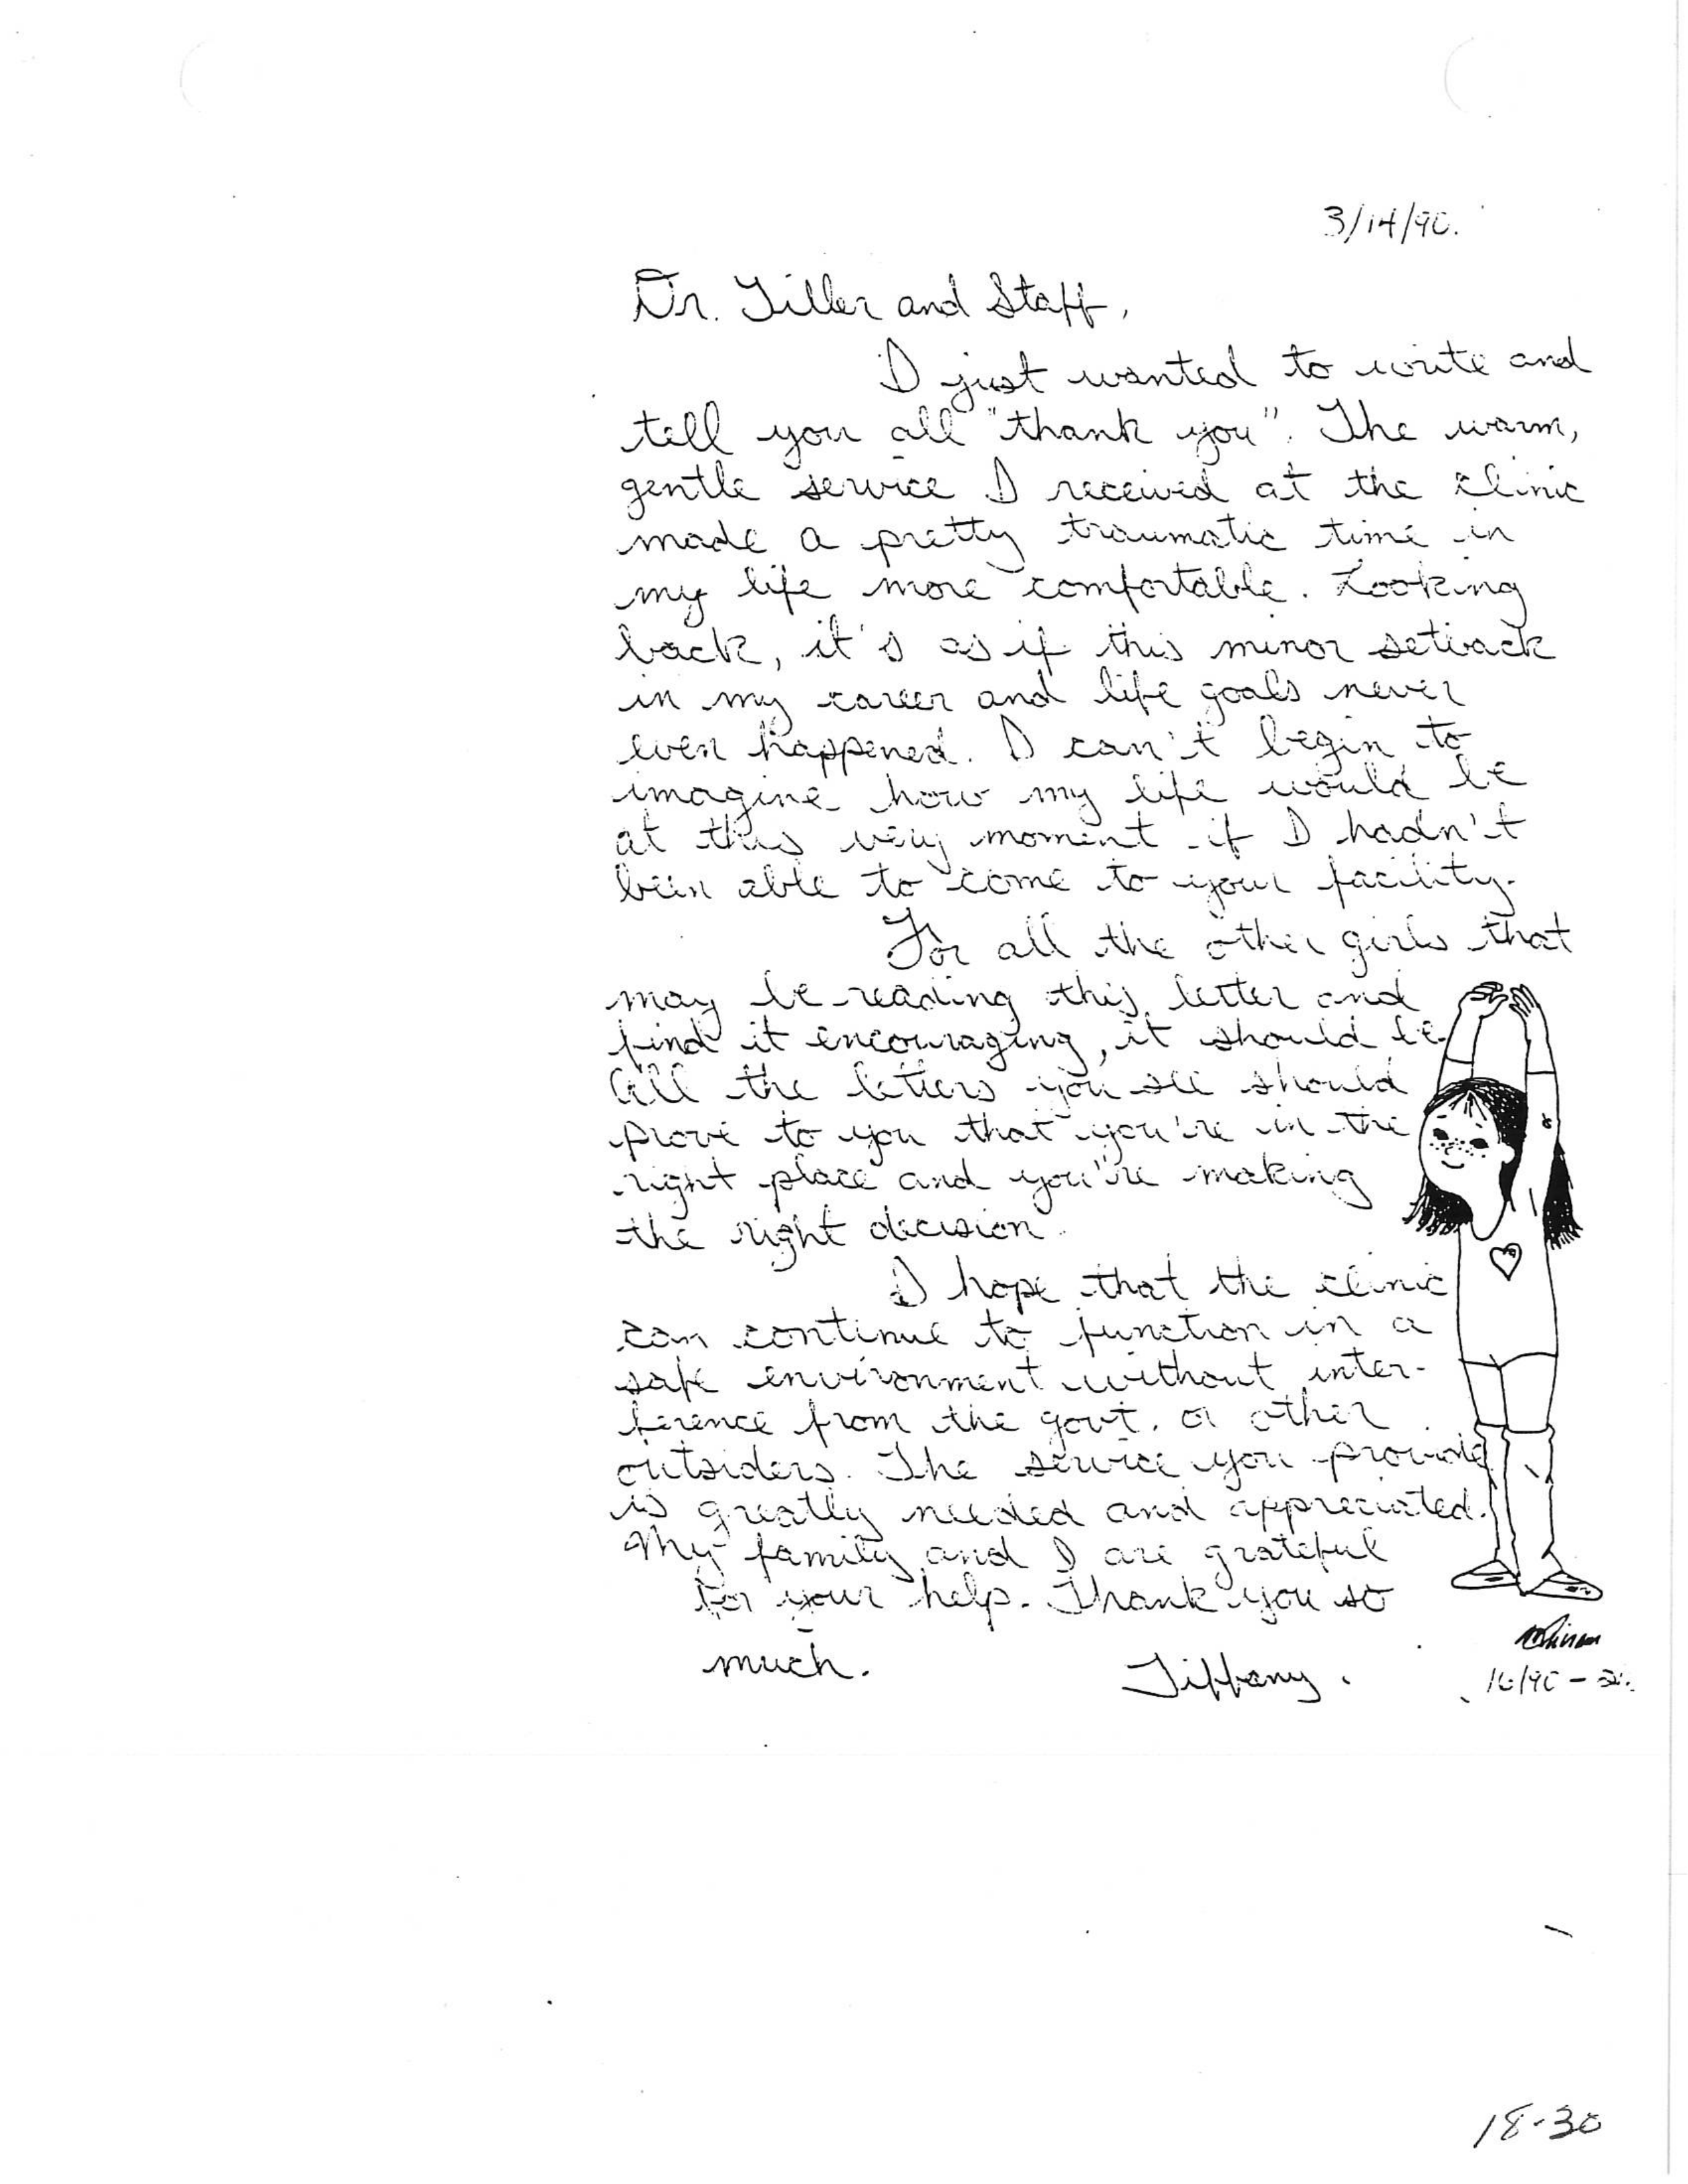 3/14/90.
Dr. Tiller and Staff,
I just wanted to write and
tell you all "thank you". The warm,
gentle service I received at the clinic
made a pretty traumatic time in
my life more comfortable. Looking
back, it's as if this minor setback
in my career and life goals never
even happened. I can't begin to
imagine how my life would be
at this very moment if I hadn't
been able to come to your facility.
For all the other girls that
may be reading this letter and
find it encouraging, it should be.
All the letters you see should
prove to you that you're in the
right place and you're making
the right decision.
I hope that the clinic
can continue to function in a
safe environment without inter-
ference from the govt. or other
outsiders. The service you provide
is greatly needed and appreciated.
My family and I are grateful
for your help. Thank you so
much.
Tiffany.
18-30